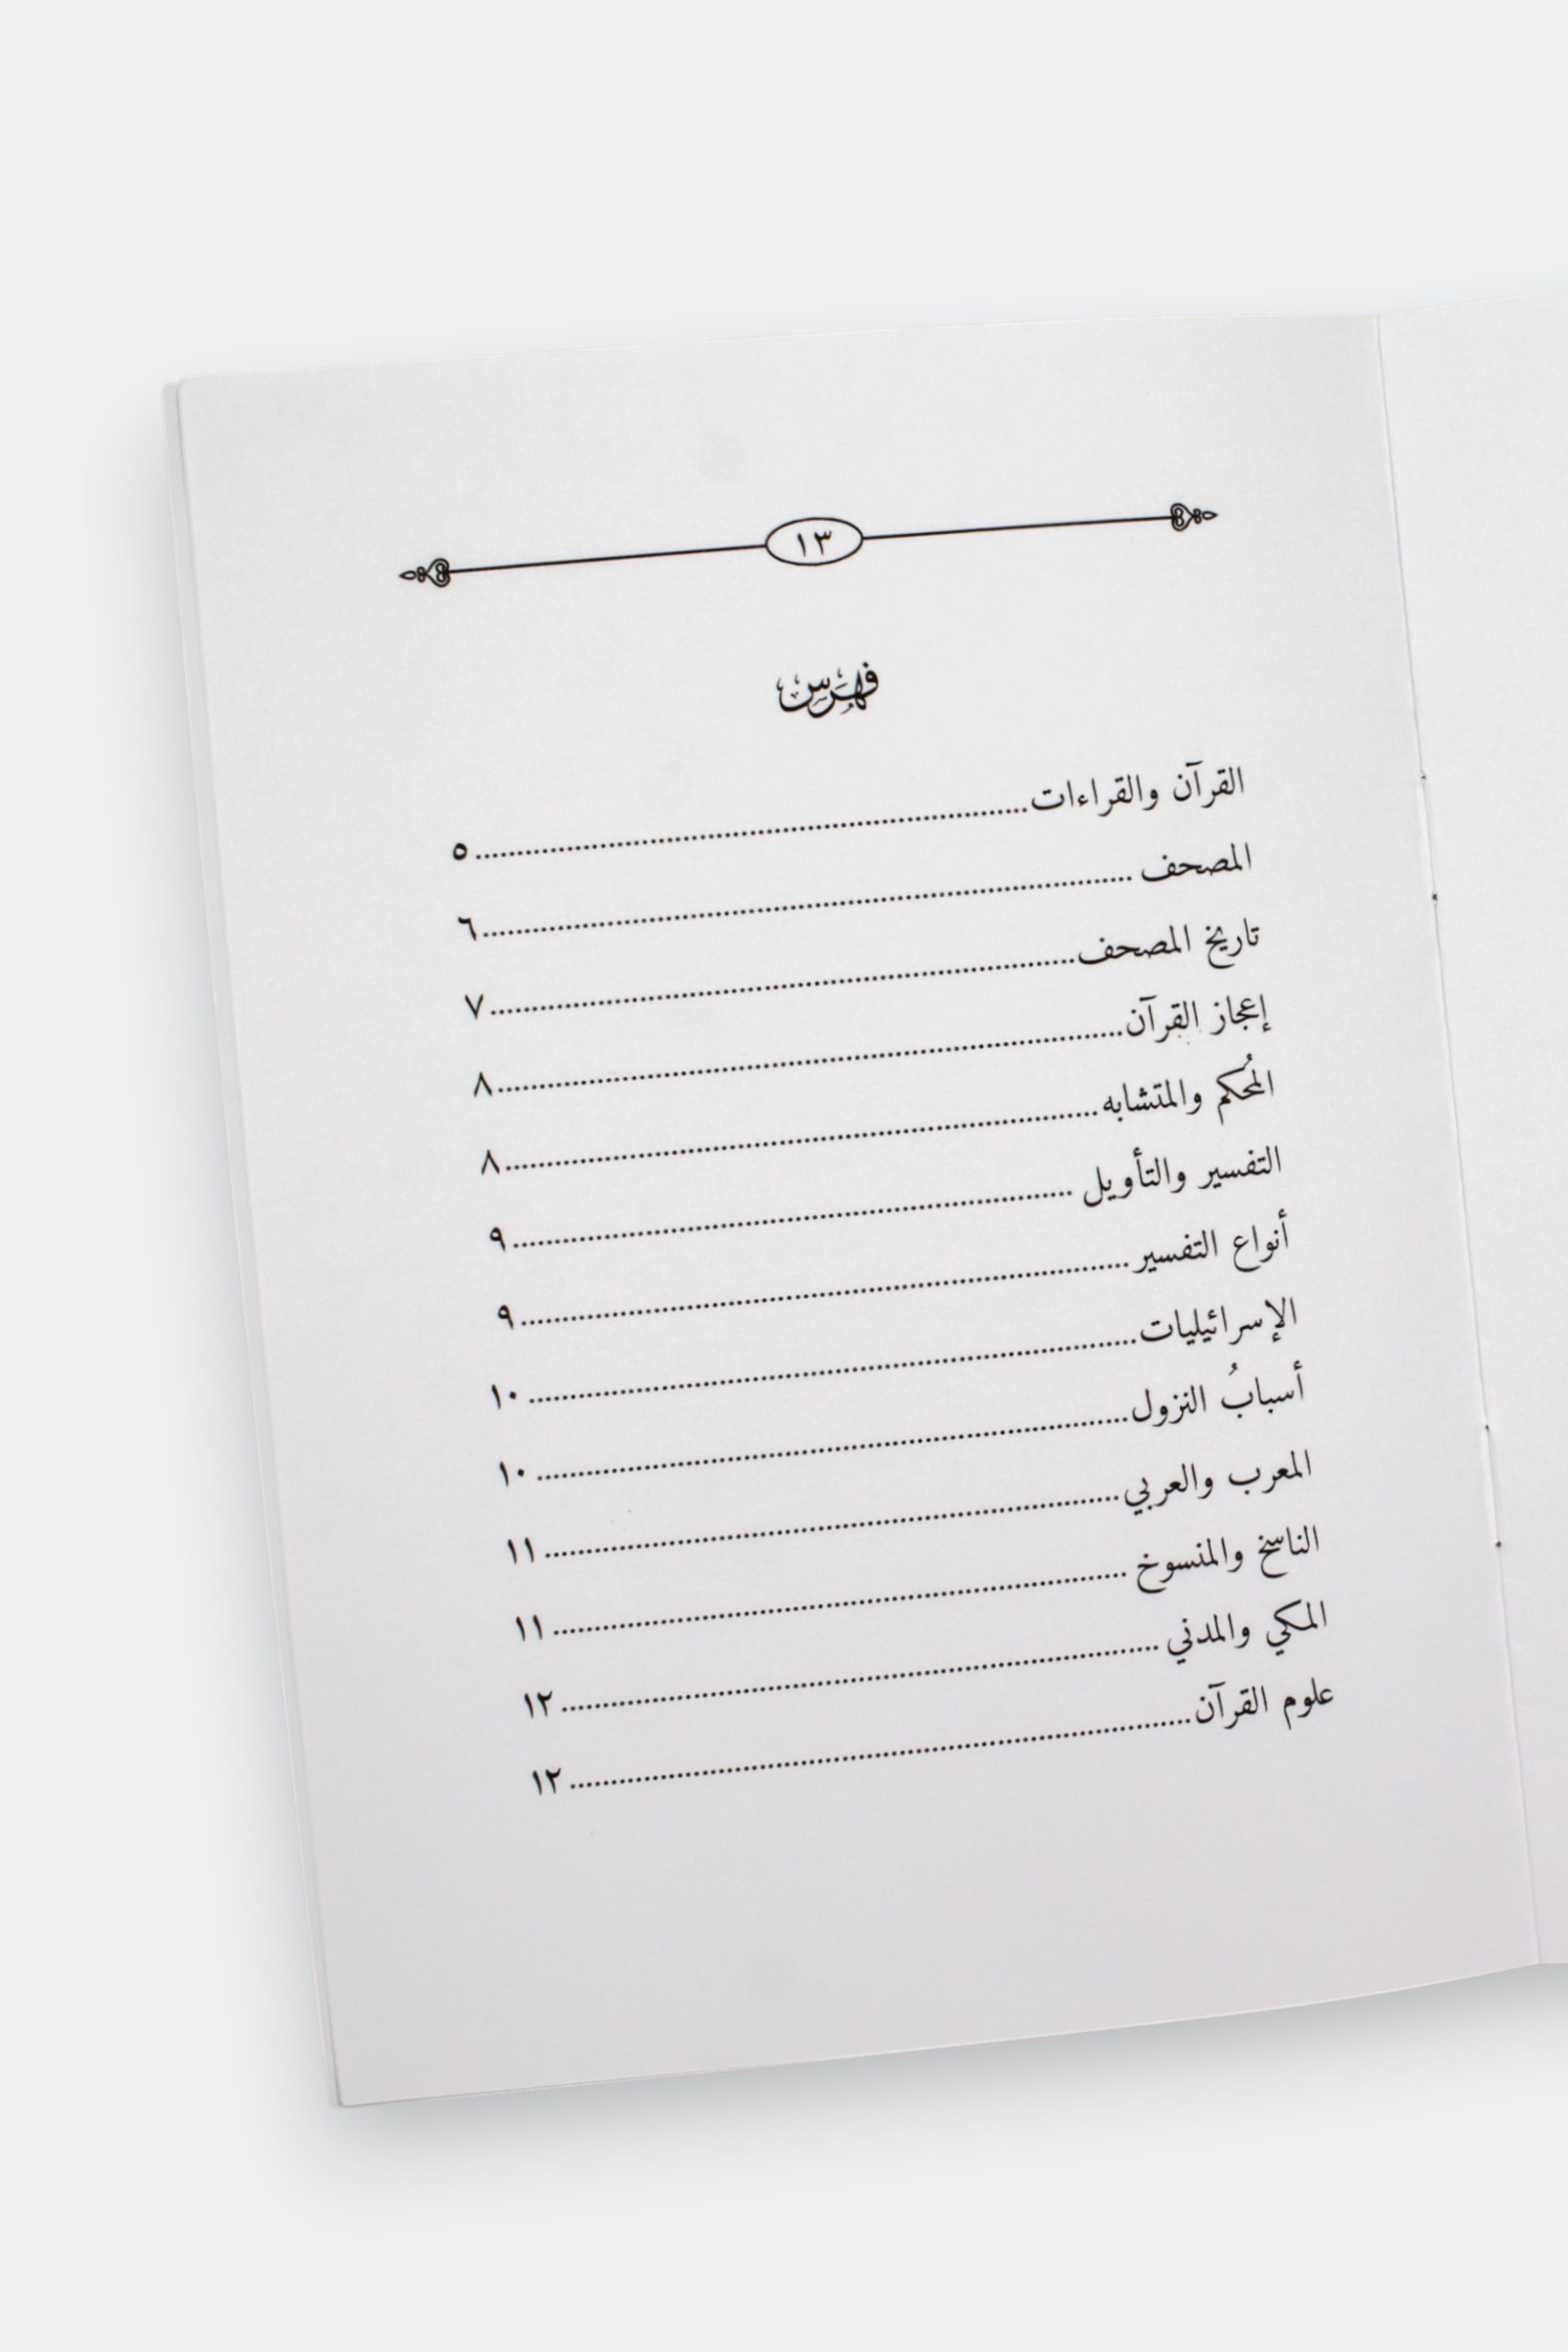 ١٣
فهرس
القرآن والقراءات ٥
المصحف ٦
تاريخ المصحف ٧
إعجاز القرآن ٨
المُحكم والمتشابه ٨
التفسير والتأويل ٩
أنواع التفسير ٩
الإسرائيليات ١٠
أسبابُ النزول ١٠
المعرب والعربي ١١
الناسخ والمنسوخ ١١
المكي والمدني ١٢
علوم القرآن ١٢